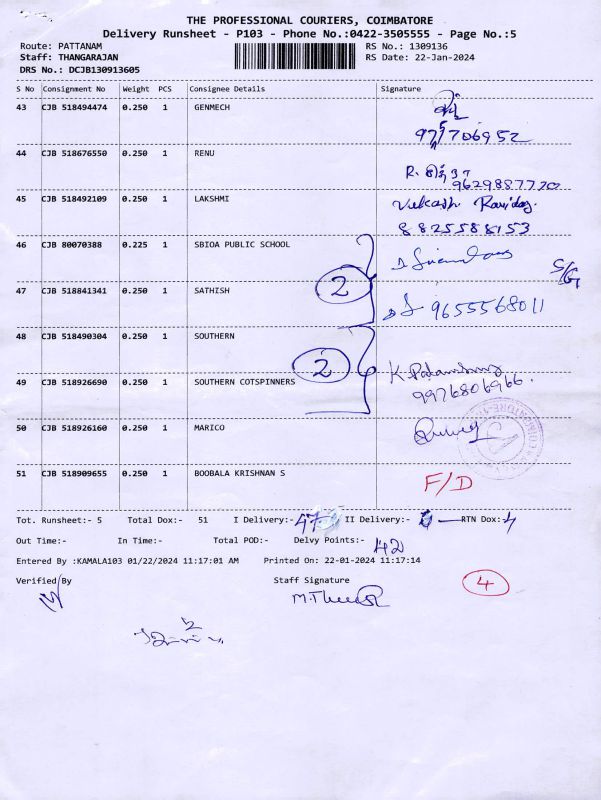 THE PROFESSIONAL COURIERS, COIMBATORE
Delivery Runsheet - P103 - Phone No.:0422-3505555 - Page No.:5
Route: PATTANAM RS No.: 1309136
Staff: THANGARAJAN RS Date: 22-Jan-2024
DRS No.: DCJB130913605
S No Consignment No Weight PCS Consignee Details Signature
43 CJB 518494474 0.250 1 GENMECH
44 CJB 518676550 0.250 1 RENU
9629887770
45 CJB 518492109 0.250 1 LAKSHMI
8825588153
46 CJB 80070388 0.225 1 SBIOA PUBLIC SCHOOL
S/G
2
47 CJB 518841341 0.250 1 SATHISH 9655568011
48 CJB 518490304 0.250 1 SOUTHERN
2
49 CJB 518926690 0.250 1 SOUTHERN COTSPINNERS
9976806966.
50 CJB 518926160 0.250 1 MARICO
51 CJB 518909655 0.250 1 BOOBALA KRISHNAN S F/D
Tot. Runsheet:- 5 Total Dox:- 51 I Delivery:- 47 II Delivery:- RTN Dox:- 4
Out Time:- In Time:- Total POD:- Delvy Points:- 42
Entered By :KAMALA103 01/22/2024 11:17:01 AM Printed On: 22-01-2024 11:17:14
Verified By Staff Signature
4